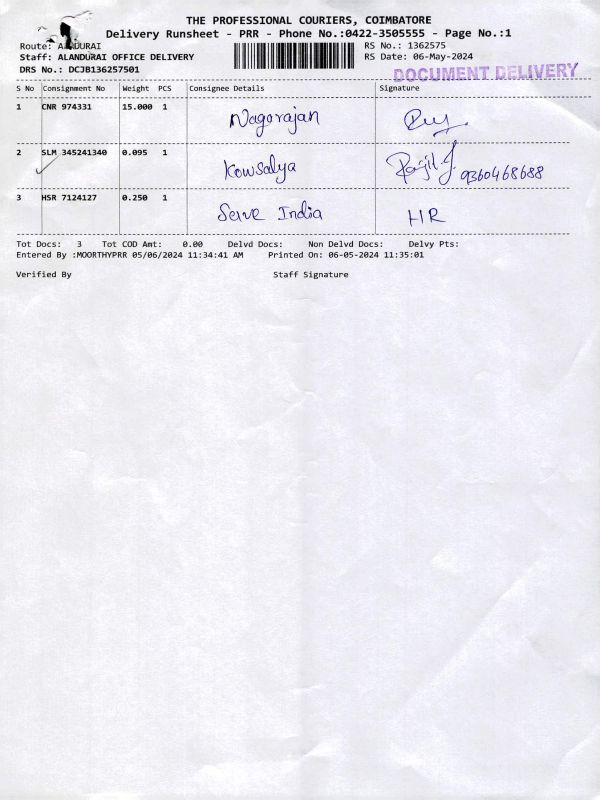 THE PROFESSIONAL COURIERS, COIMBATORE
Delivery Runsheet - PRR - Phone No.:0422-3505555 - Page No.:1
Route: ALANDURAI
RS No.: 1362575
Staff: ALANDURAI OFFICE DELIVERY
RS Date: 06-May-2024
DRS No.: DCJB136257501
DOCUMENT DELIVERY
S No Consignment No Weight PCS Consignee Details Signature
1 CNR 974331 15.000 1 Nagorajan
2 SLM 345241340 0.095 1 Kowsalya Ranjit.J 9360468688
3 HSR 7124127 0.250 1 Serve India HR
Tot Docs: 3 Tot COD Amt: 0.00 Delvd Docs: Non Delvd Docs: Delvy Pts:
Entered By :MOORTHYPRR 05/06/2024 11:34:41 AM Printed On: 06-05-2024 11:35:01
Verified By Staff Signature